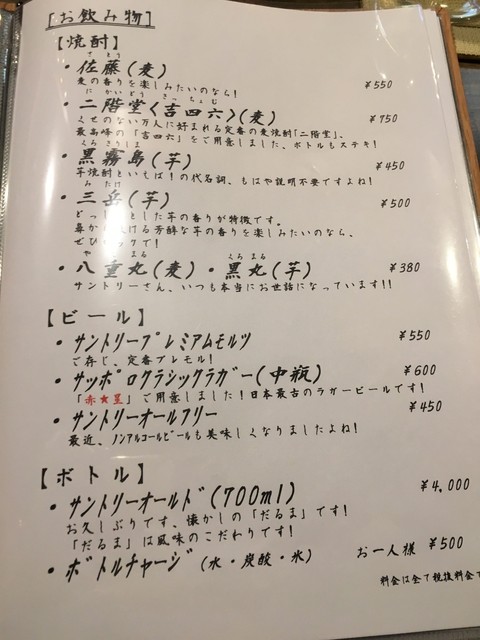 [お飲み物]
【焼酎】
さ とう
・佐藤(麦) ¥550
麦の香りを楽しみたいのなら!
に かい どう きっ ちょ む
・二階堂〈吉四六〉(麦) ¥750
くせのない万人に好まれる定番の麦焼酎「二階堂」、
最高峰の「吉四六」をご用意しました、ボトルもステキ!
くろ きり しま
・黒霧島(芋) ¥450
芋焼酎といえば!の代名詞、もはや説明不要ですよね!
み たけ
・三岳(芋) ¥500
どっ とした芋の香りが特徴です。
鼻か ける芳醇な芋の香りを楽しみたいのなら、
ぜひ ックで!
や え まる くろ まる
・八重丸(麦)・黒丸(芋) ¥380
サントリーさん、いつも本当にお世話になっています!!
【ビール】
・サントリープレミアムモルツ ¥550
ご存じ、定番プレモル!
・サッポロクラシックラガー(中瓶) ¥600
「赤★星」ご用意しました!日本最古のラガービールです!
・サントリーオールフリー ¥450
最近、ノンアルコールビールも美味しくなりましたよね!
【ボトル】
・サントリーオールド(700ml) ¥4,000
お久しぶりです、懐かしの「だるま」です!
「だるま」は風味のこだわりです!
・ボトルチャージ(水・炭酸・氷) お一人様 ¥500
料金は全て税抜料金で